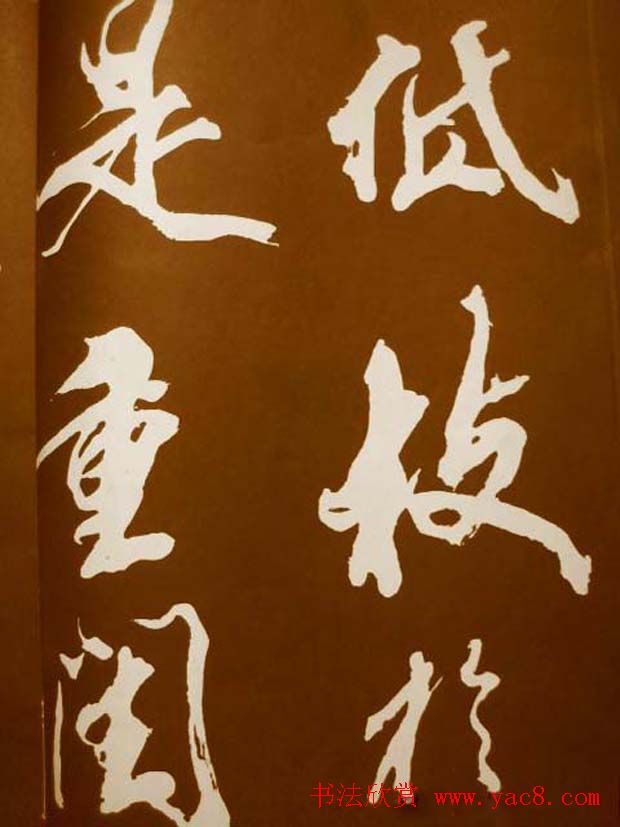 低枝於
是重閨
书法欣赏 www.yac8.com